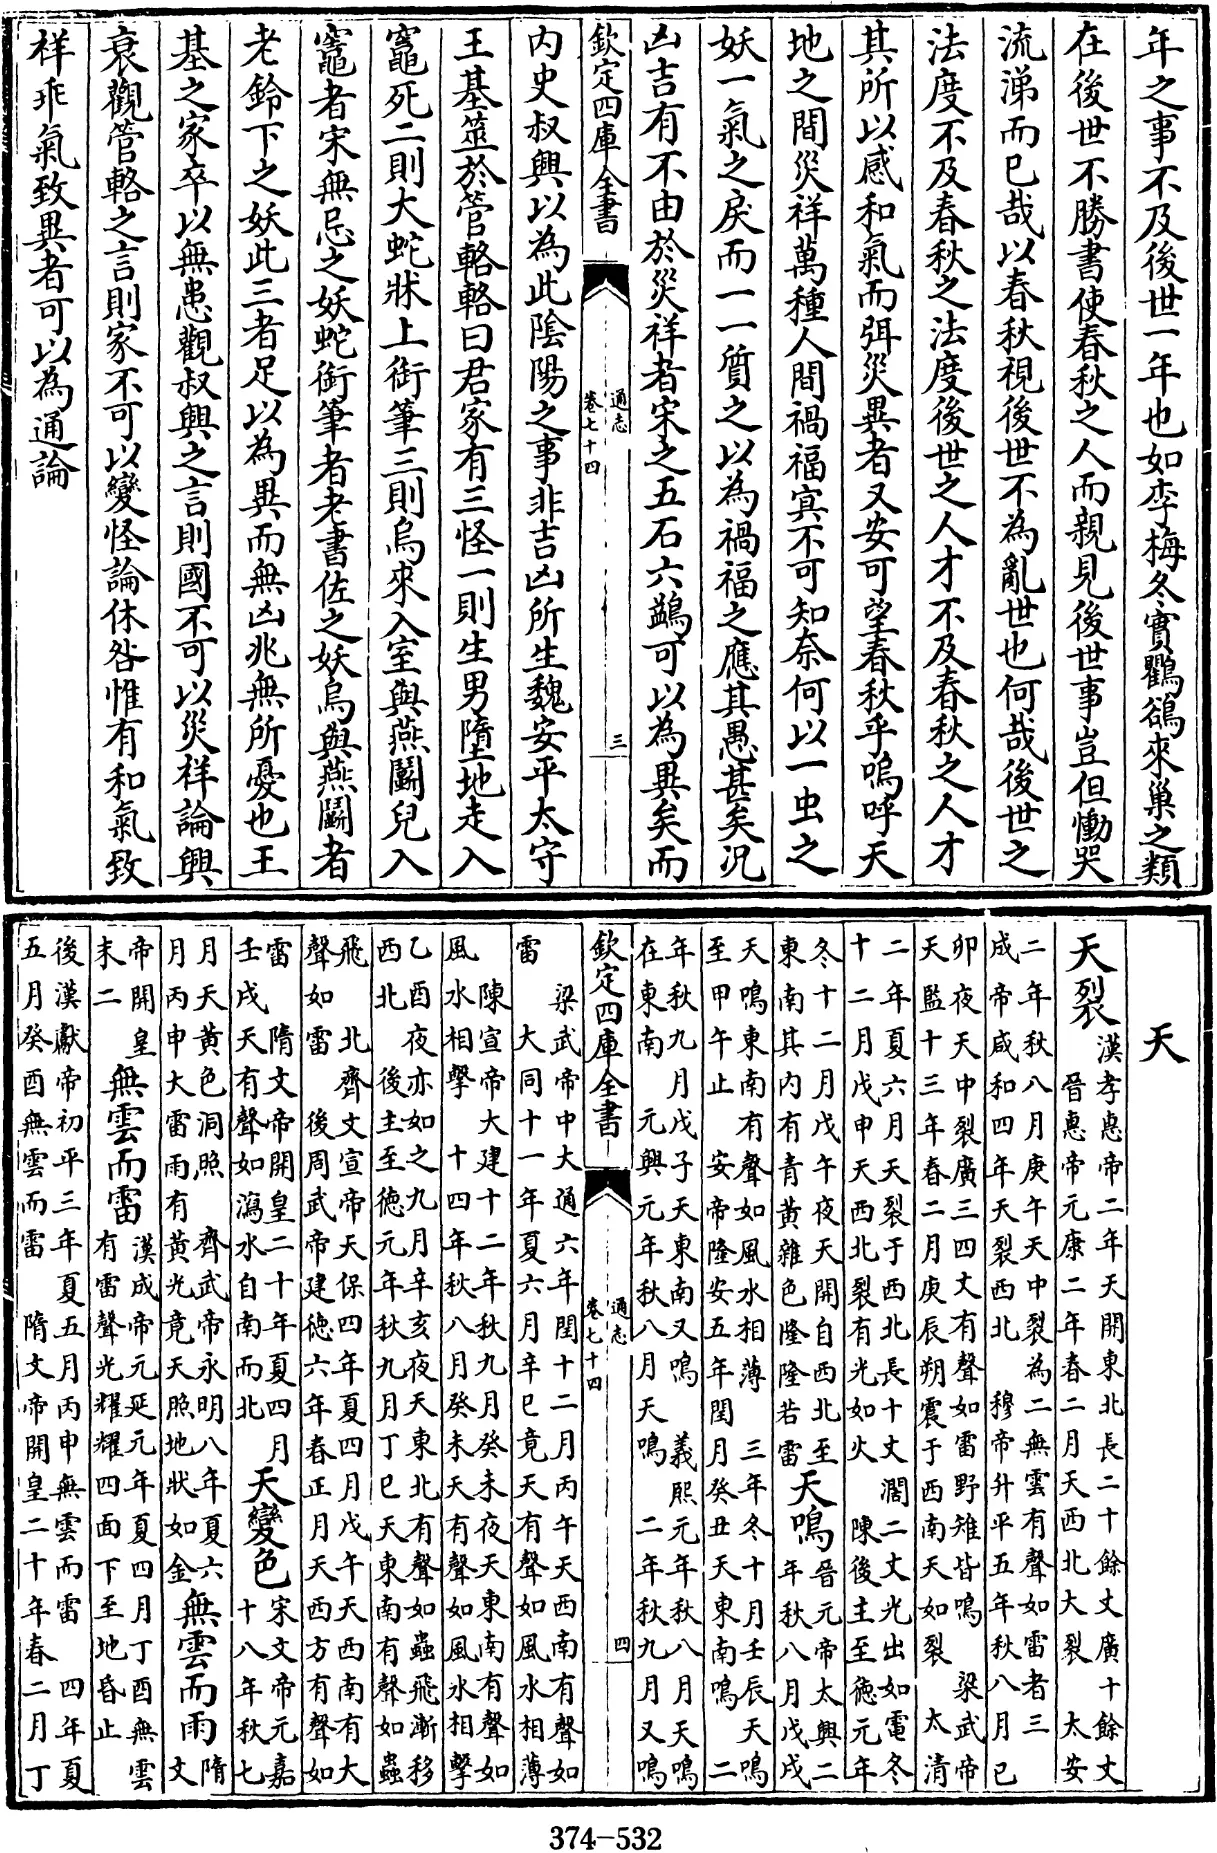 年之事不及後世一年也如李梅冬實鸜鵒來巢之類
在後世不勝書使春秋之人而親見後世事豈但慟哭
流涕而已哉以春秋視後世不為亂世也何哉後世之
法度不及春秋之法度後世之人才不及春秋之人才
其所以感和氣而弭災異者又安可望春秋乎嗚呼天
地之間災祥萬種人間禍福冥不可知奈何以一虫之
妖一氣之戾而一一質之以為禍福之應其愚甚矣況
凶吉有不由於災祥者宋之五石六鷁可以為異矣而
欽定四庫全書
通志
卷七十四
三
內史叔興以為此陰陽之事非吉凶所生魏安平太守
王基筮於管輅輅曰君家有三怪一則生男墮地走入
竈死二則大蛇牀上銜筆三則烏來入室與燕鬭兒入
竈者宋無忌之妖蛇銜筆者老書佐之妖烏與燕鬭者
老鈴下之妖此三者足以為異而無凶兆無所憂也王
基之家卒以無患觀叔興之言則國不可以災祥論興
衰觀管輅之言則家不可以變怪論休咎惟有和氣致
祥乖氣致異者可以為通論
天
天裂
漢孝惠帝二年天開東北長二十餘丈廣十餘丈
晉惠帝元康二年春二月天西北大裂 太安
二年秋八月庚午天中裂為二無雲有聲如雷者三
成帝咸和四年天裂西北 穆帝升平五年秋八月已
卯夜天中裂廣三四丈有聲如雷野雉皆鳴 梁武帝
天監十三年春二月庚辰朔震于西南天如裂 太清
二年夏六月天裂于西北長十丈濶二丈光出如電冬
十二月戊申天西北裂有光如火 陳後主至德元年
冬十二月戊午夜天開自西北至
東南其內有青黃雜色隆隆若雷
天鳴
晉元帝太興二
年秋八月戊戌
天鳴東南有聲如風水相薄 三年冬十月壬辰天鳴
至甲午止 安帝隆安五年閏月癸丑天東南鳴 二
年秋九月戊子天東南又鳴 義熙元年秋八月天鳴
在東南 元興元年秋八月天鳴 二年秋九月又鳴
欽定四庫全書
通志
卷七十四
四
梁武帝中大通六年閏十二月丙午天西南有聲如
雷 大同十一年夏六月辛巳竟天有聲如風水相薄
陳宣帝大建十二年秋九月癸未夜天東南有聲如
風水相擊 十四年秋八月癸未天有聲如風水相擊
乙酉夜亦如之九月辛亥夜天東北有聲如蟲飛漸移
西北 後主至德元年秋九月丁巳天東南有聲如蟲
飛 北齊文宣帝天保四年夏四月戊午天西南有大
聲如雷 後周武帝建德六年春正月天西方有聲如
雷 隋文帝開皇二十年夏四月
壬戌天有聲如瀉水自南而北
天變色
宋文帝元嘉
十八年秋七
月天黃色洞照 齊武帝永明八年夏六
月丙申大雷雨有黃光竟天照地狀如金
無雲而雨
隋
文
帝開皇
末二
無雲而雷
漢成帝元延元年夏四月丁酉無雲
有雷聲光耀耀四面下至地昏止
後漢獻帝初平三年夏五月丙申無雲而雷 四年夏
五月癸酉無雲而雷 隋文帝開皇二十年春二月丁
374-532